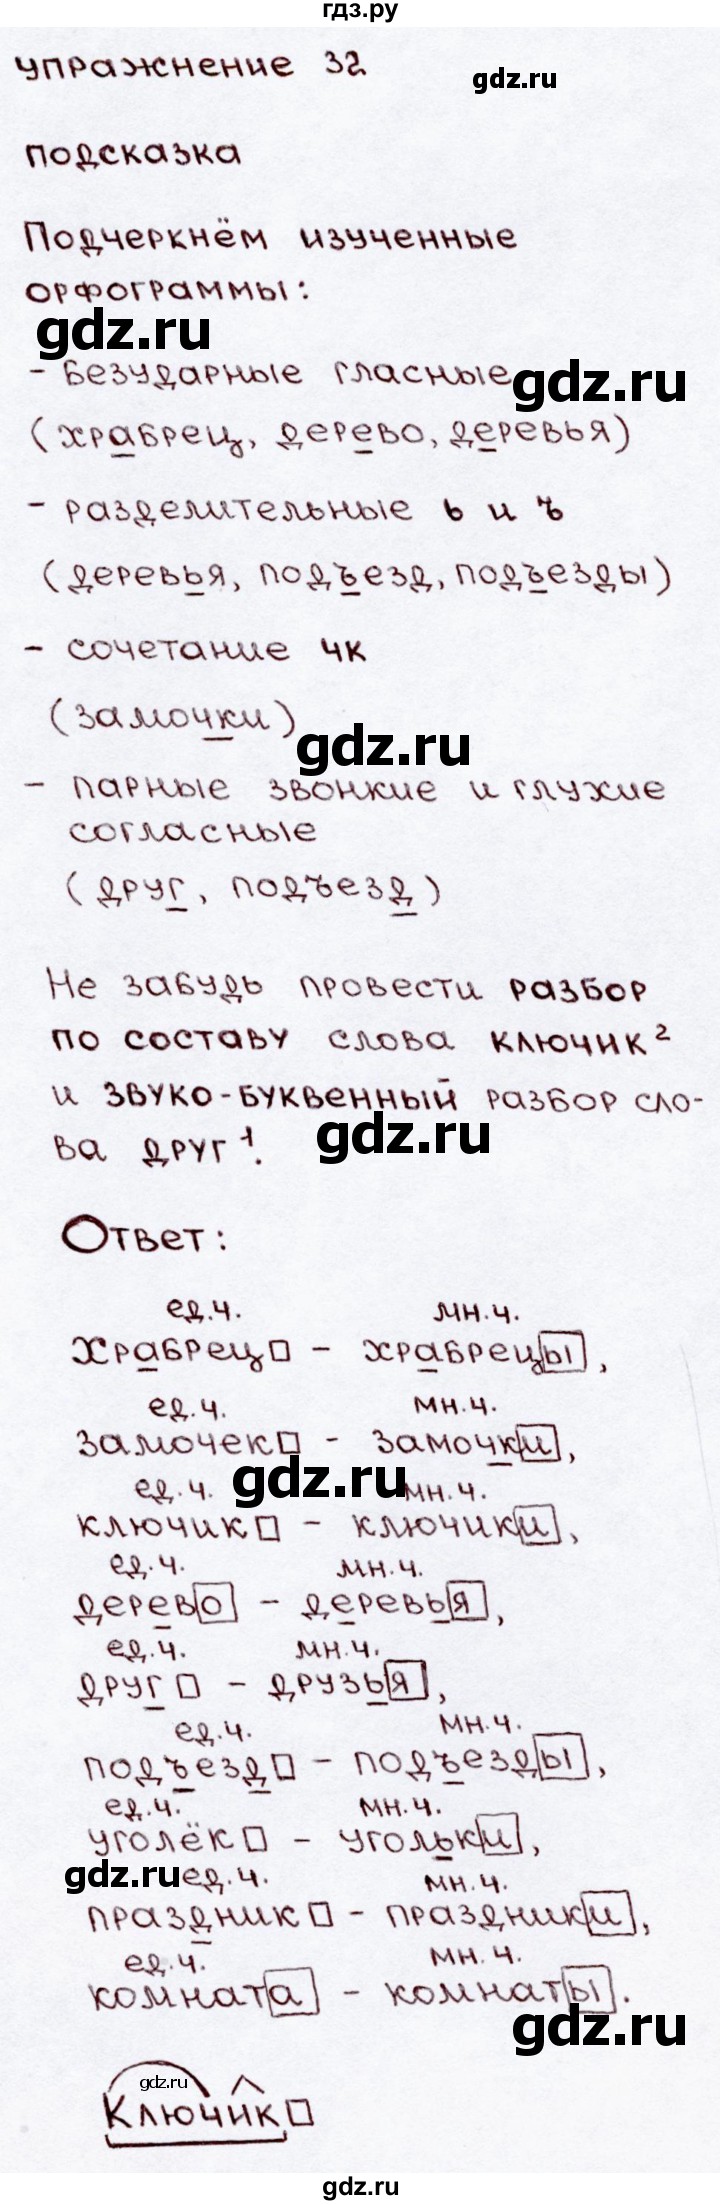 гдз.ру
упражнение 32
gdz.ru
подсказка
Подчеркнём изученные
орфограммы:
gdz.ru
- безударные гласные
gdz.ru
(храбрец, дерево, деревья)
- разделительные ь и ъ
(деревья, подъезд, подъезды)
- сочетание чк
(замочки)
gdz.ru
- парные звонкие и глухие
согласные
(друг, подъезд)
Не забудь провести разбор
по составу слова ключик²
и звуко-буквенный разбор сло-
ва друг¹.
gdz.ru
Ответ:
ед.ч. мн.ч.
храбрец - храбрецы,
ед.ч. мн.ч.
замочек - замочки,
gdz.ru
ед.ч. мн.ч.
ключик - ключики,
ед.ч. мн.ч.
дерево - деревья,
ед.ч. мн.ч.
друг - друзья,
ед.ч. мн.ч.
подъезд - подъезды,
ед.ч. мн.ч.
уголёк - угольки,
gdz.ru
ед.ч. мн.ч.
праздник - праздники,
ед.ч. мн.ч.
комната - комнаты.
gdz.ru
gdz.ru
Ключик
gdz.ru